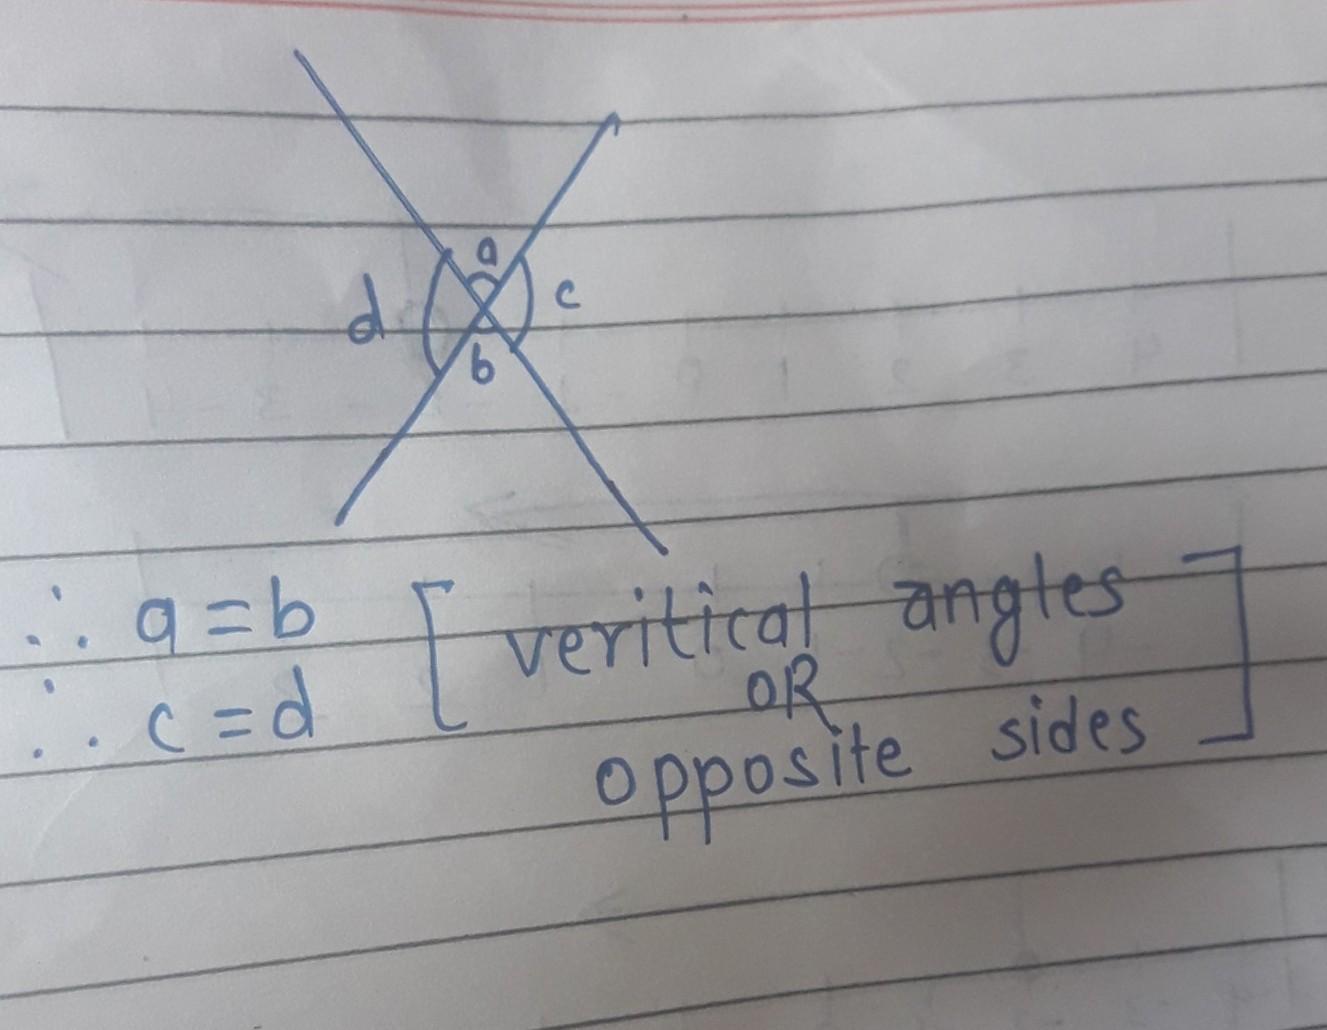 a
d c
b
∴ a = b [ veritical angles ]
OR
∴ c = d
opposite sides